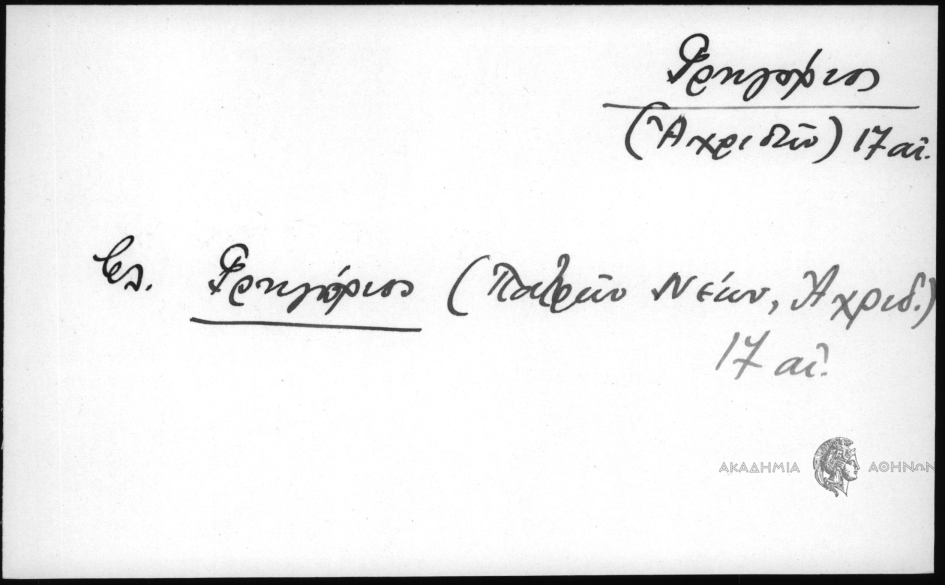 Γρηγόριος
(Ἀχριδῶν) 17 αἰ.
βλ. Γρηγόριος (Πατρῶν Νέων, Ἀχριδ.)
17 αἰ.
ΑΚΑΔΗΜΙΑ ΑΘΗΝΩΝ